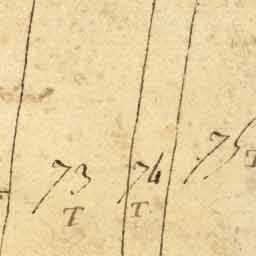 73 74 75
T T T